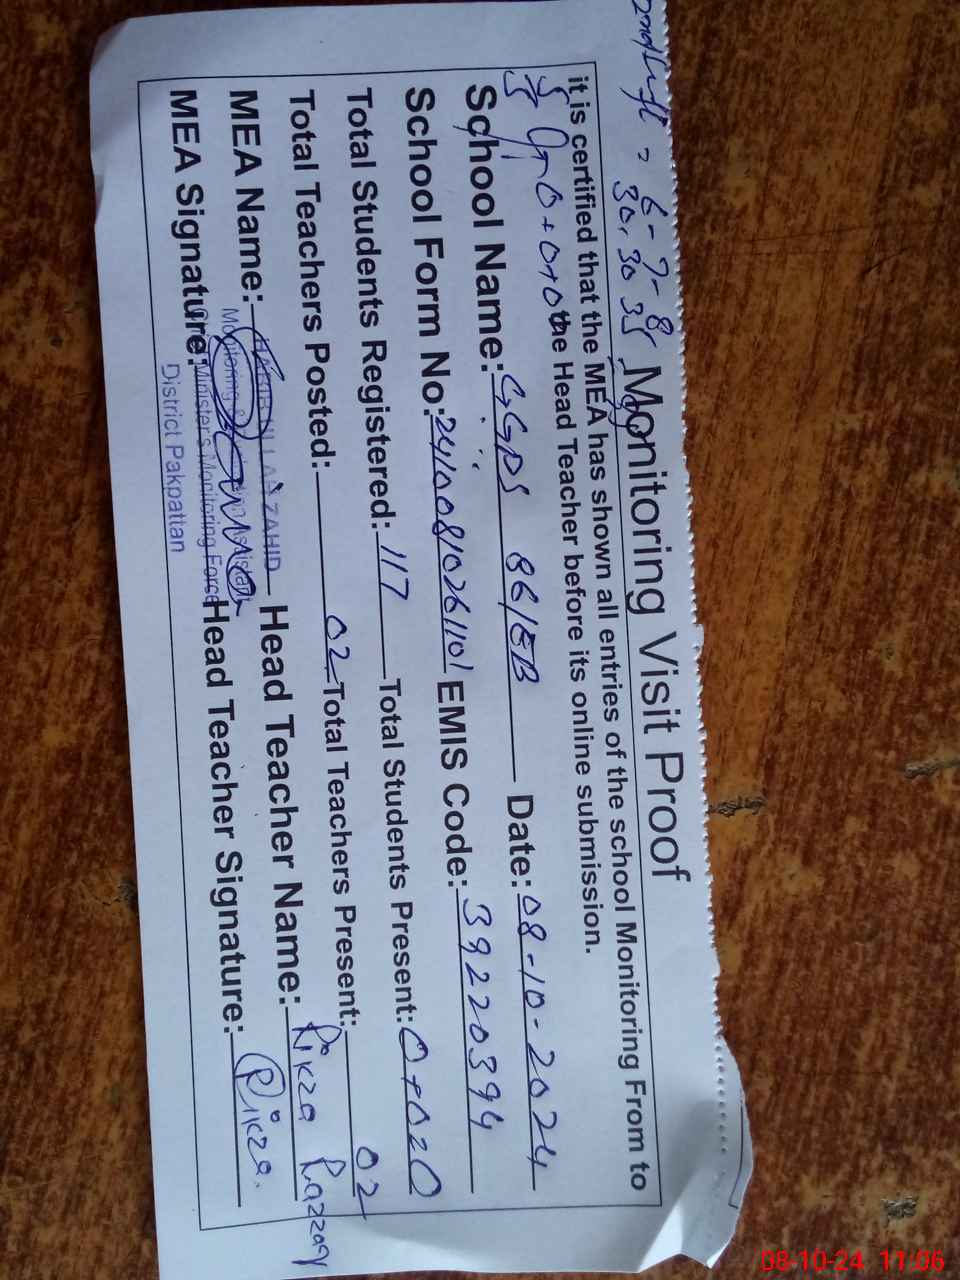 6-7-8
30, 30 35
Monitoring Visit Proof
it is certified that the MEA has shown all entries of the school Monitoring From to
the Head Teacher before its online submission.
School Name: GGPS 86/EB Date: 08-10-2024
School Form No: 24100810261101 EMIS Code: 39220394
Total Students Registered: 117 Total Students Present: 0+0=0
Total Teachers Posted: 02 Total Teachers Present: 02
MEA Name: ZAHID Head Teacher Name: Rikza Razzaq
MEA Signature: Head Teacher Signature: Rikza.
Minister's Monitoring Force
District Pakpattan
08-10-24 11:06